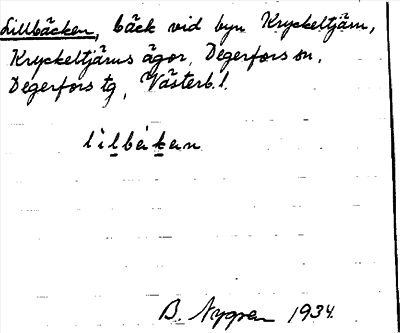 Lillbäcken, bäck vid byn Kryckeltjärn,
Kryckeltjärns ägor, Degerfors sn,
Degerfors tg, Västerb. l.
B. Nygren 1934.